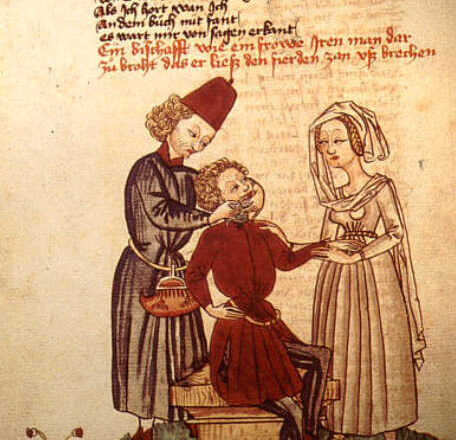 Als ich hort wan ich
An dem büch mit fant
es wart mir von sagen erkant
Ein bischafft wie ein frowe Iren man dar
zü broht das er liesz den fierden zan vsz brechen